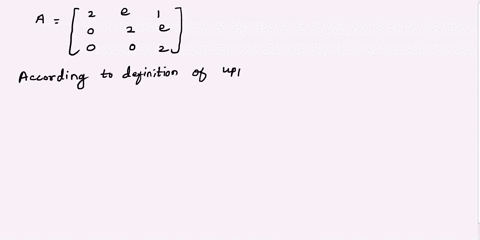 A = [ 2 e 1
0 2 e
0 0 2 ]
According to definition of up